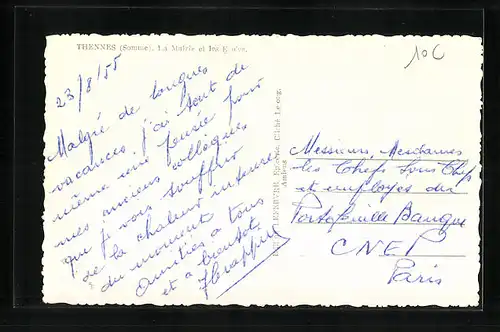 THENNES (Somme). La Mairie et les Ecoles.
10C
23/8/55
Malgré de longues
vacances j'ai tout de
même une pensée pour
mes anciens collègues
que je vois souffrir
de la chaleur intense
du moment
Amitiés à tous
et à bientôt
LEFEBVRE, Epicerie, Cliché Lelong,
Amiens
Messieurs, Mesdames
les Chefs Sous Chefs
et employés du
Portefeuille Banque
CNEP
Paris